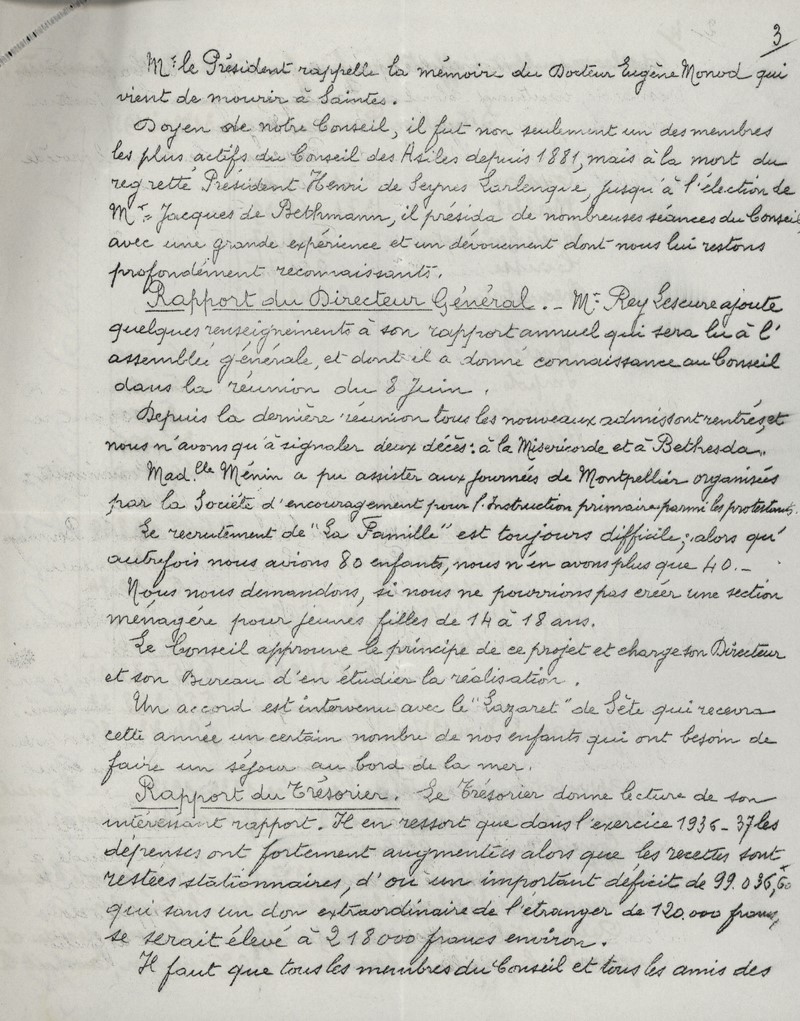 3
Mr. le Président rappelle la mémoire du Docteur Eugène Monod qui
vient de mourir à Saintes.
Doyen de notre Conseil, il fut non seulement un des membres
les plus actifs du Conseil des Asiles depuis 1881, mais à la mort du
regretté Président Henri de Seynes Larlenque, jusqu'à l'élection de
Mr. Jacques de Bethmann, il présida de nombreuses séances du Conseil
avec une grande expérience et un dévouement dont nous lui restons
profondément reconnaissants.
Rapport du Directeur Général. - Mr. Rey Lescure ajoute
quelques renseignements à son rapport annuel qui sera lu à l'
assemblée générale, et dont il a donné connaissance au Conseil
dans la réunion du 8 Juin.
Depuis la dernière réunion tous les nouveaux admis sont rentrés, et
nous n'avons qu'à signaler deux décès: à la Miséricorde et à Bethesda.
Mad.lle Ménin a pu assister aux journées de Montpellier organisées
par la Société d'encouragement pour l'Instruction primaire parmi les protestants.
Le recrutement de "La Famille" est toujours difficile; alors qu'
autrefois nous avions 80 enfants, nous n'en avons plus que 40. -
Nous nous demandons, si nous ne pourrions pas créer une section
ménagère pour jeunes filles de 14 à 18 ans.
Le Conseil approuve le principe de ce projet et charge son Directeur
et son Bureau d'en étudier la réalisation.
Un accord est intervenu avec le "Lazaret" de Sète qui recevra
cette année un certain nombre de nos enfants qui ont besoin de
faire un séjour au bord de la mer.
Rapport du Trésorier. Le Trésorier donne lecture de son
intéressant rapport. Il en ressort que dans l'exercice 1936-37 les
dépenses ont fortement augmentées alors que les recettes sont
restées stationnaires, d'où un important déficit de 99.036,60
qui sans un don extraordinaire de l'étranger de 120.000 francs,
se serait élevé à 218000 francs environ.
Il faut que tous les membres du Conseil et tous les amis des